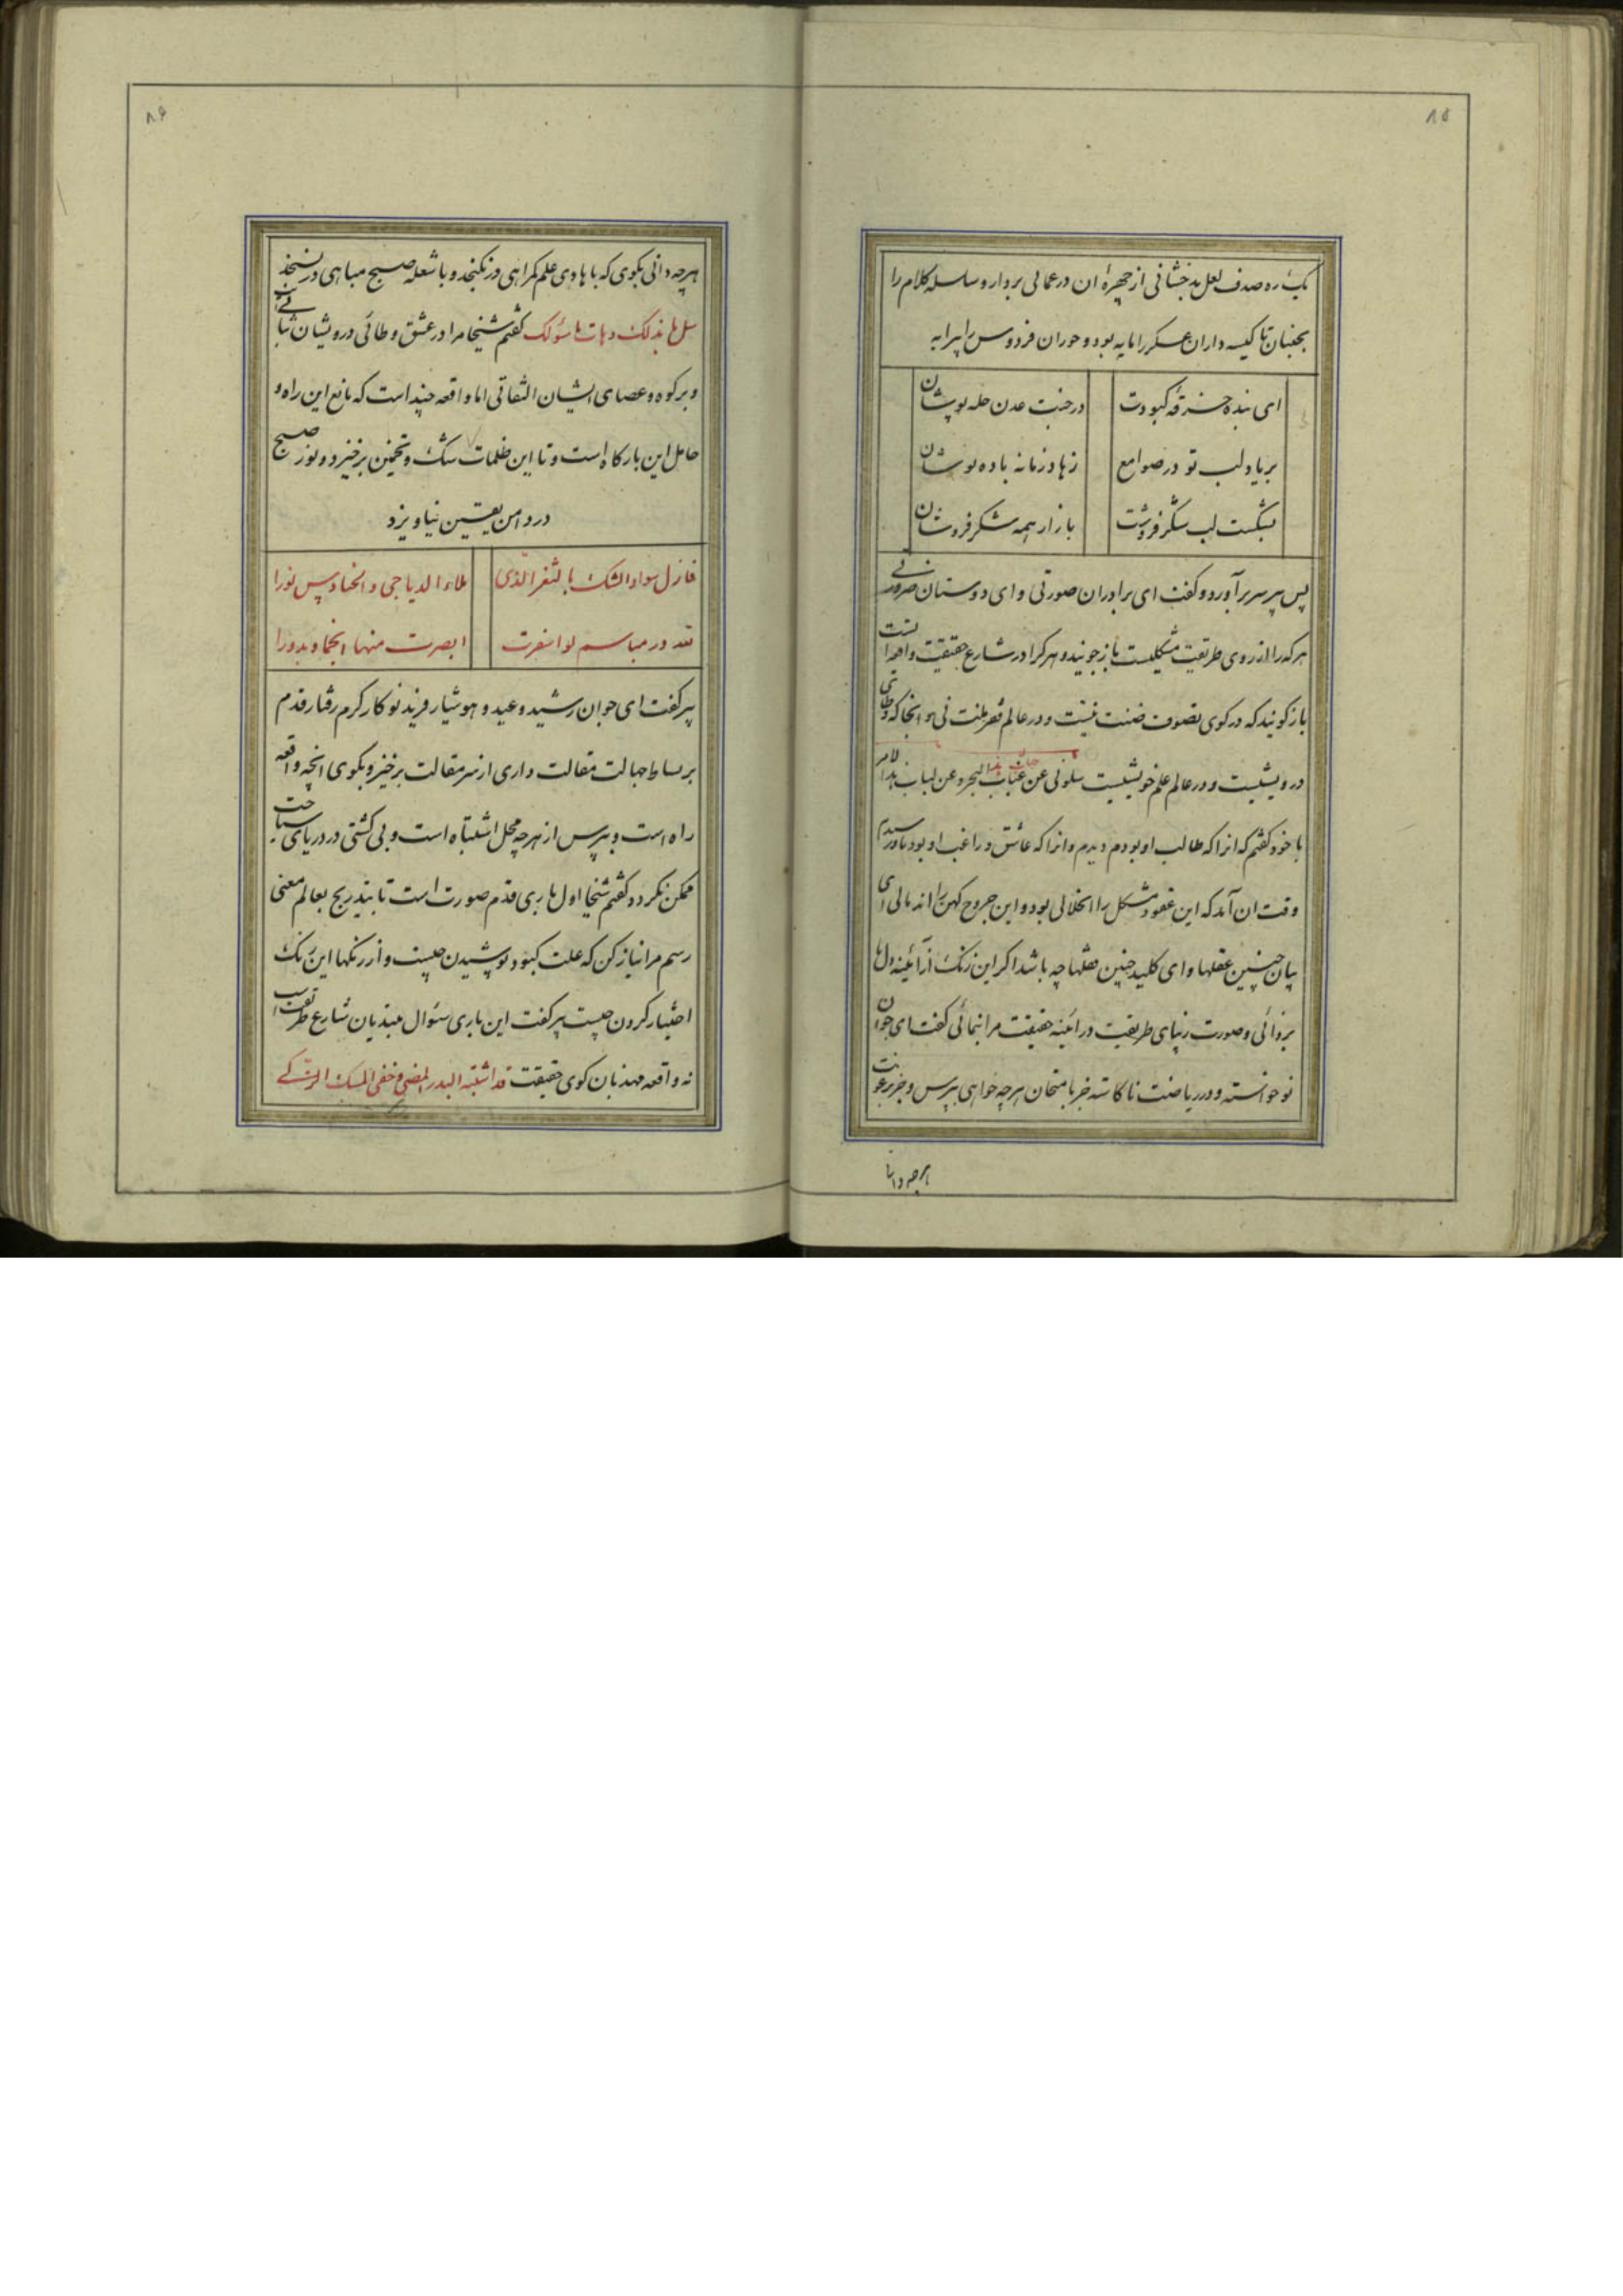 ۸۵
یک ره صدف لعل بدخشانی از چهرهٔ ان درعمالی بردار و سلسله کلام را
بجنبان تا کیسه داران عسکر را مایه بود و حوران فردوس را پیرایه
ای بنده خرقه کبودت درجنت عدن حله پوشان
بر یاد لب تو در صوامع زهاد زمانه باده نوشان
بشکست لب شکر فروشت بازار همه شکر فروشان
پس پیر سر برآورد و گفت ای برادران صورتی و ای دوستان ضرورتی
هرکه را از روی طریقت مشکلیست باز جوئید و هرکرا در شارع حقیقت واقعه ایست
باز گوئید که در کوی تصوف ضنت نیست و در عالم فقر منت نی و انجا که وطای
درویشیست و در عالم علم خویشیست سلونی عن عباب البحر و عن لباب هذا الامر
با خود گفتم که انرا که طالب او بودم دیدم و انرا که عاشق و راغب او بودم رسیدم
وقت ان آمد که این عقود مشکل را انحلالی بود و این جروح کهن را اندمالی ای
بیان چنین عقلها و ای کلید چنین قفلها چه باشد اگر این زنگ از آئینه دل ما
بزدائی و صورت زیبای طریقت در ائینه حقیقت مرا بنمائی گفت ای جوان
نوخواسته و در ریاضت ناکاسته جز بامتحان هرچه خواهی بپرس و جز برعونت
هرچه دانی
۸۶
هرچه دانی بگوی که با هادی علم گمراهی در نگنجد و با شعله صبح مباهی در نسنجد
سل ما بذلک و هات ما سئولک گفتم شیخا مرا در عشق وطائی درویشان ثباتی
و بر کوه و عصای ایشان التفاتی اما واقعه چند است که مانع این راه و
حامل این بارگاه است و تا این ظلمات شک و تخمین برخیزد و نور صبح
در دامن یقین نیاویزد
فازل سواد الشک بالثغر الذی ملاء الدیاجی و الحنادس نورا
تعد در مباسم لو اسفرت ابصرت منها انجما و بدورا
پیر گفت ای جوان رشید و عید و هوشیار فرید نو کار گرم رفتار قدم
بر بساط جهالت مقالت داری از سر مقالت برخیز و بگوی انچه واقعه
راه است و بپرس از هرچه محل اشتباه است و بی کشتی در دریای سباحت
ممکن نگردد گفتم شیخا اول باری قدم صورت است تا بتدریج بعالم معنی
رسم مرا نیاز کن که علت کبود پوشیدن چیست و از رنگها این رنگ
اختیار کردن چیست پیر گفت این باری سئوال مبتدیان شارع طریقت است
نه واقعه مهذبان کوی حقیقت قد اشتبه البدر المضی و خفی المسک الزکی